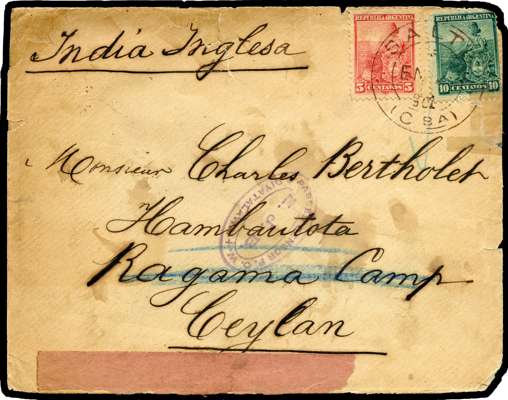 India Inglesa
REPUBLICA ARGENTINA
5 CENTAVOS 5
REPUBLICA ARGENTINA
10 CENTAVOS 10
SALT
EN
902
(C BA)
Monsieur Charles Bertholet
Hambautota
Ragama Camp
Ceylan
DIYATALAWA